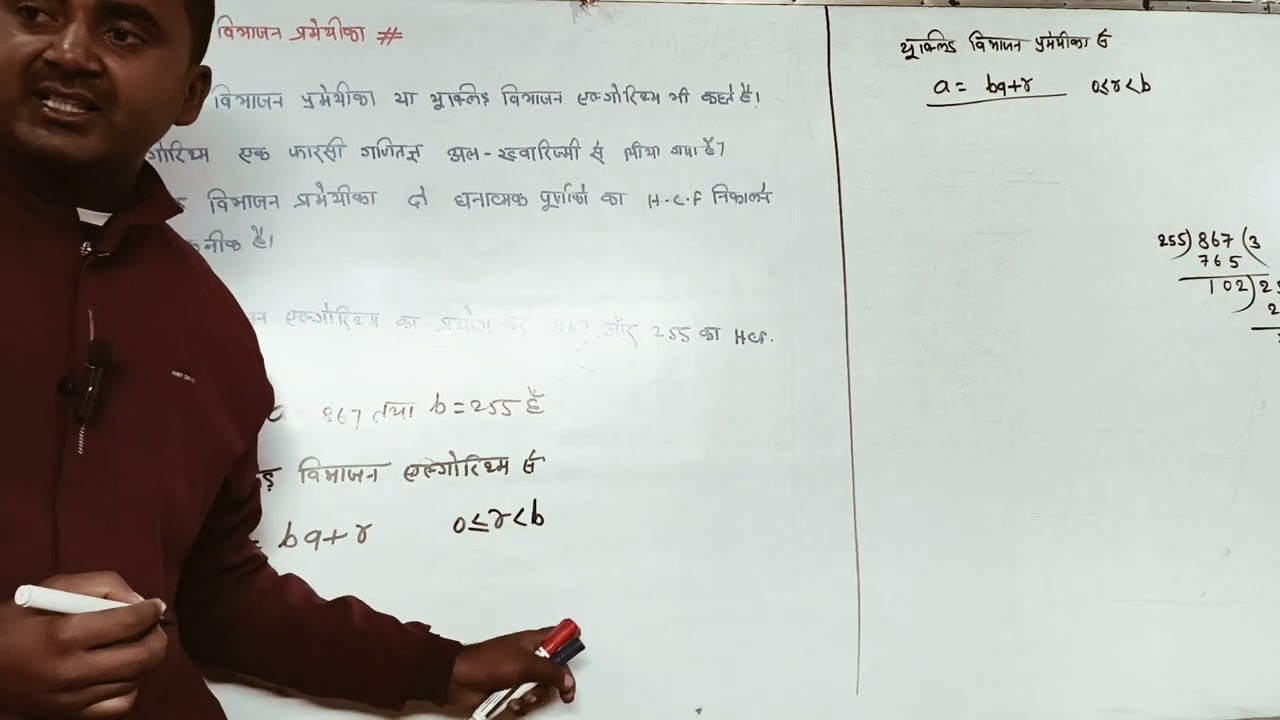 विभाजन प्रमेयीका #
विभाजन प्रमेयीका या यूक्लिड विभाजन एल्गोरिथ्म भी कहते हैं।
गोरिथ्म एक फारसी गणितज्ञ अल-ख्वारिज्मी से लिया गया है?
विभाजन प्रमेयीका दो धनात्मक पूर्णांकों का H.C.F निकालने
नीक है।
एल्गोरिथ्म का प्रयोग कर 867 और 255 का HCF.
867 तथा b = 255 है
विभाजन एल्गोरिथ्म से
= bq+r 0≤r<b
यूक्लिड विभाजन प्रमेयीका से
a = bq+r 0≤r<b
255) 867 (3
765
102) 2
2